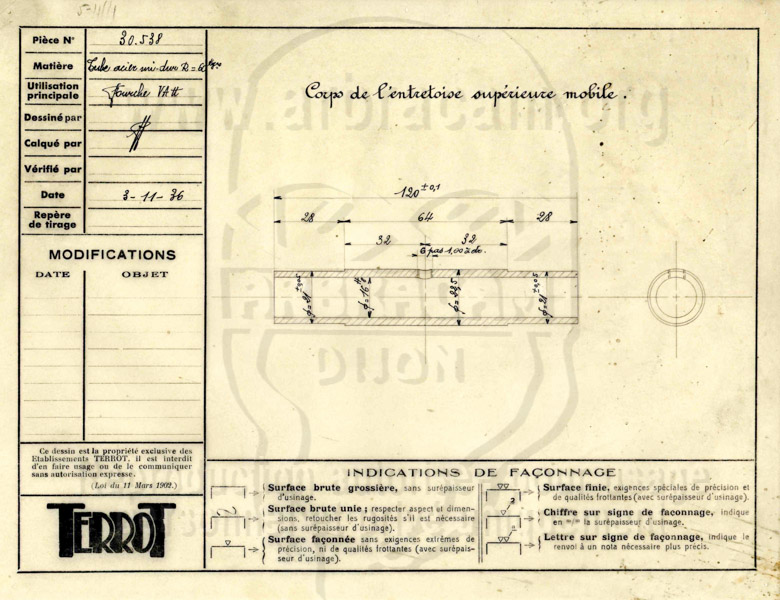 Pièce N° 30.538
Matière Tube acier mi-dur R = 60
Utilisation
principale Fourche VAH
Dessiné par
Calqué par
Vérifié par
Date 3-11-36
Repère
de tirage
MODIFICATIONS
DATE OBJET
Corps de l'entretoise supérieure mobile.
120 ±0,1
28 64 28
32 32
6 pas 1,00
ARBRACAM
DIJON
www.arbracam.org
Ce dessin est la propriété exclusive des
Etablissements TERROT, il est interdit
d'en faire usage ou de le communiquer
sans autorisation expresse.
(Loi du 11 Mars 1902.)
TERROT
INDICATIONS DE FAÇONNAGE
Surface brute grossière, sans surépaisseur
d'usinage.
Surface brute unie ; respecter aspect et dimen-
sions, retoucher les rugosités s'il est nécessaire
(sans surépaisseur d'usinage).
Surface façonnée sans exigences extrêmes de
précision, ni de qualités frottantes (avec surépais-
seur d'usinage).
Surface finie, exigences spéciales de précision et
de qualités frottantes (avec surépaisseur d'usinage).
Chiffre sur signe de façonnage, indique
en m/m la surépaisseur d'usinage.
Lettre sur signe de façonnage, indique le
renvoi à un nota nécessaire plus précis.